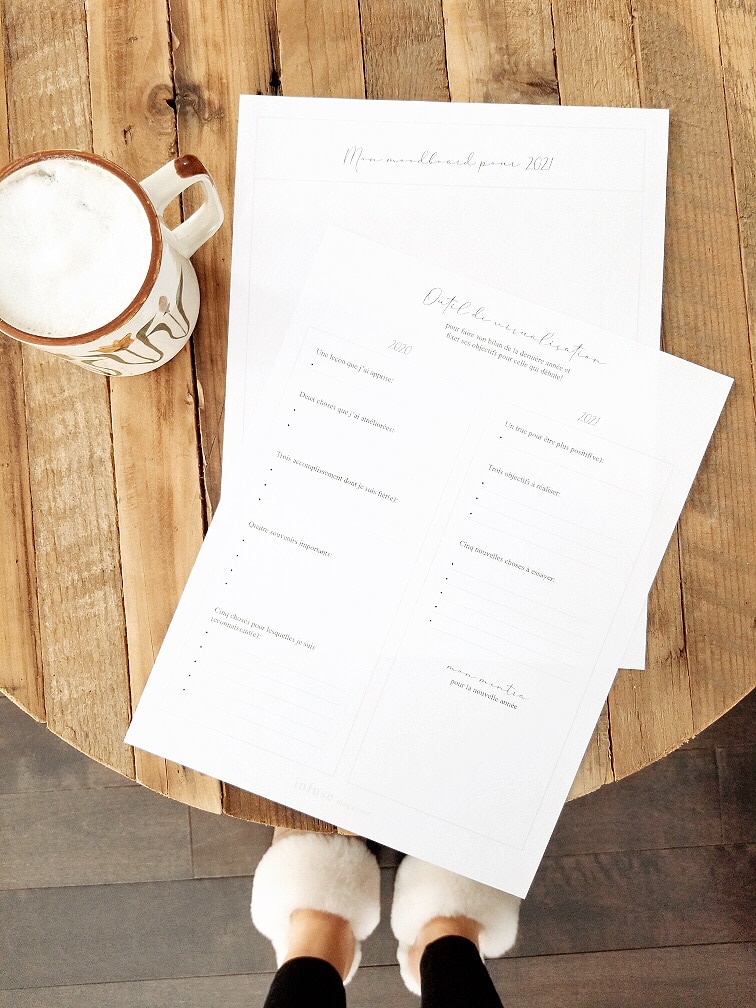 Mon moodboard pour 2021
Outil de visualisation
pour faire son bilan de la dernière année et
fixer ses objectifs pour celle qui débute!
2020
Une leçon que j'ai apprise:
Deux choses que j'ai améliorées:
Trois accomplissement dont je suis fier(e):
Quatre souvenirs importants:
Cinq choses pour lesquelles je suis
reconnaissant(e):
2021
Un truc pour être plus positif(ve):
Trois objectifs à réaliser:
Cinq nouvelles choses à essayer:
mon mantra
pour la nouvelle année
infuse magazine